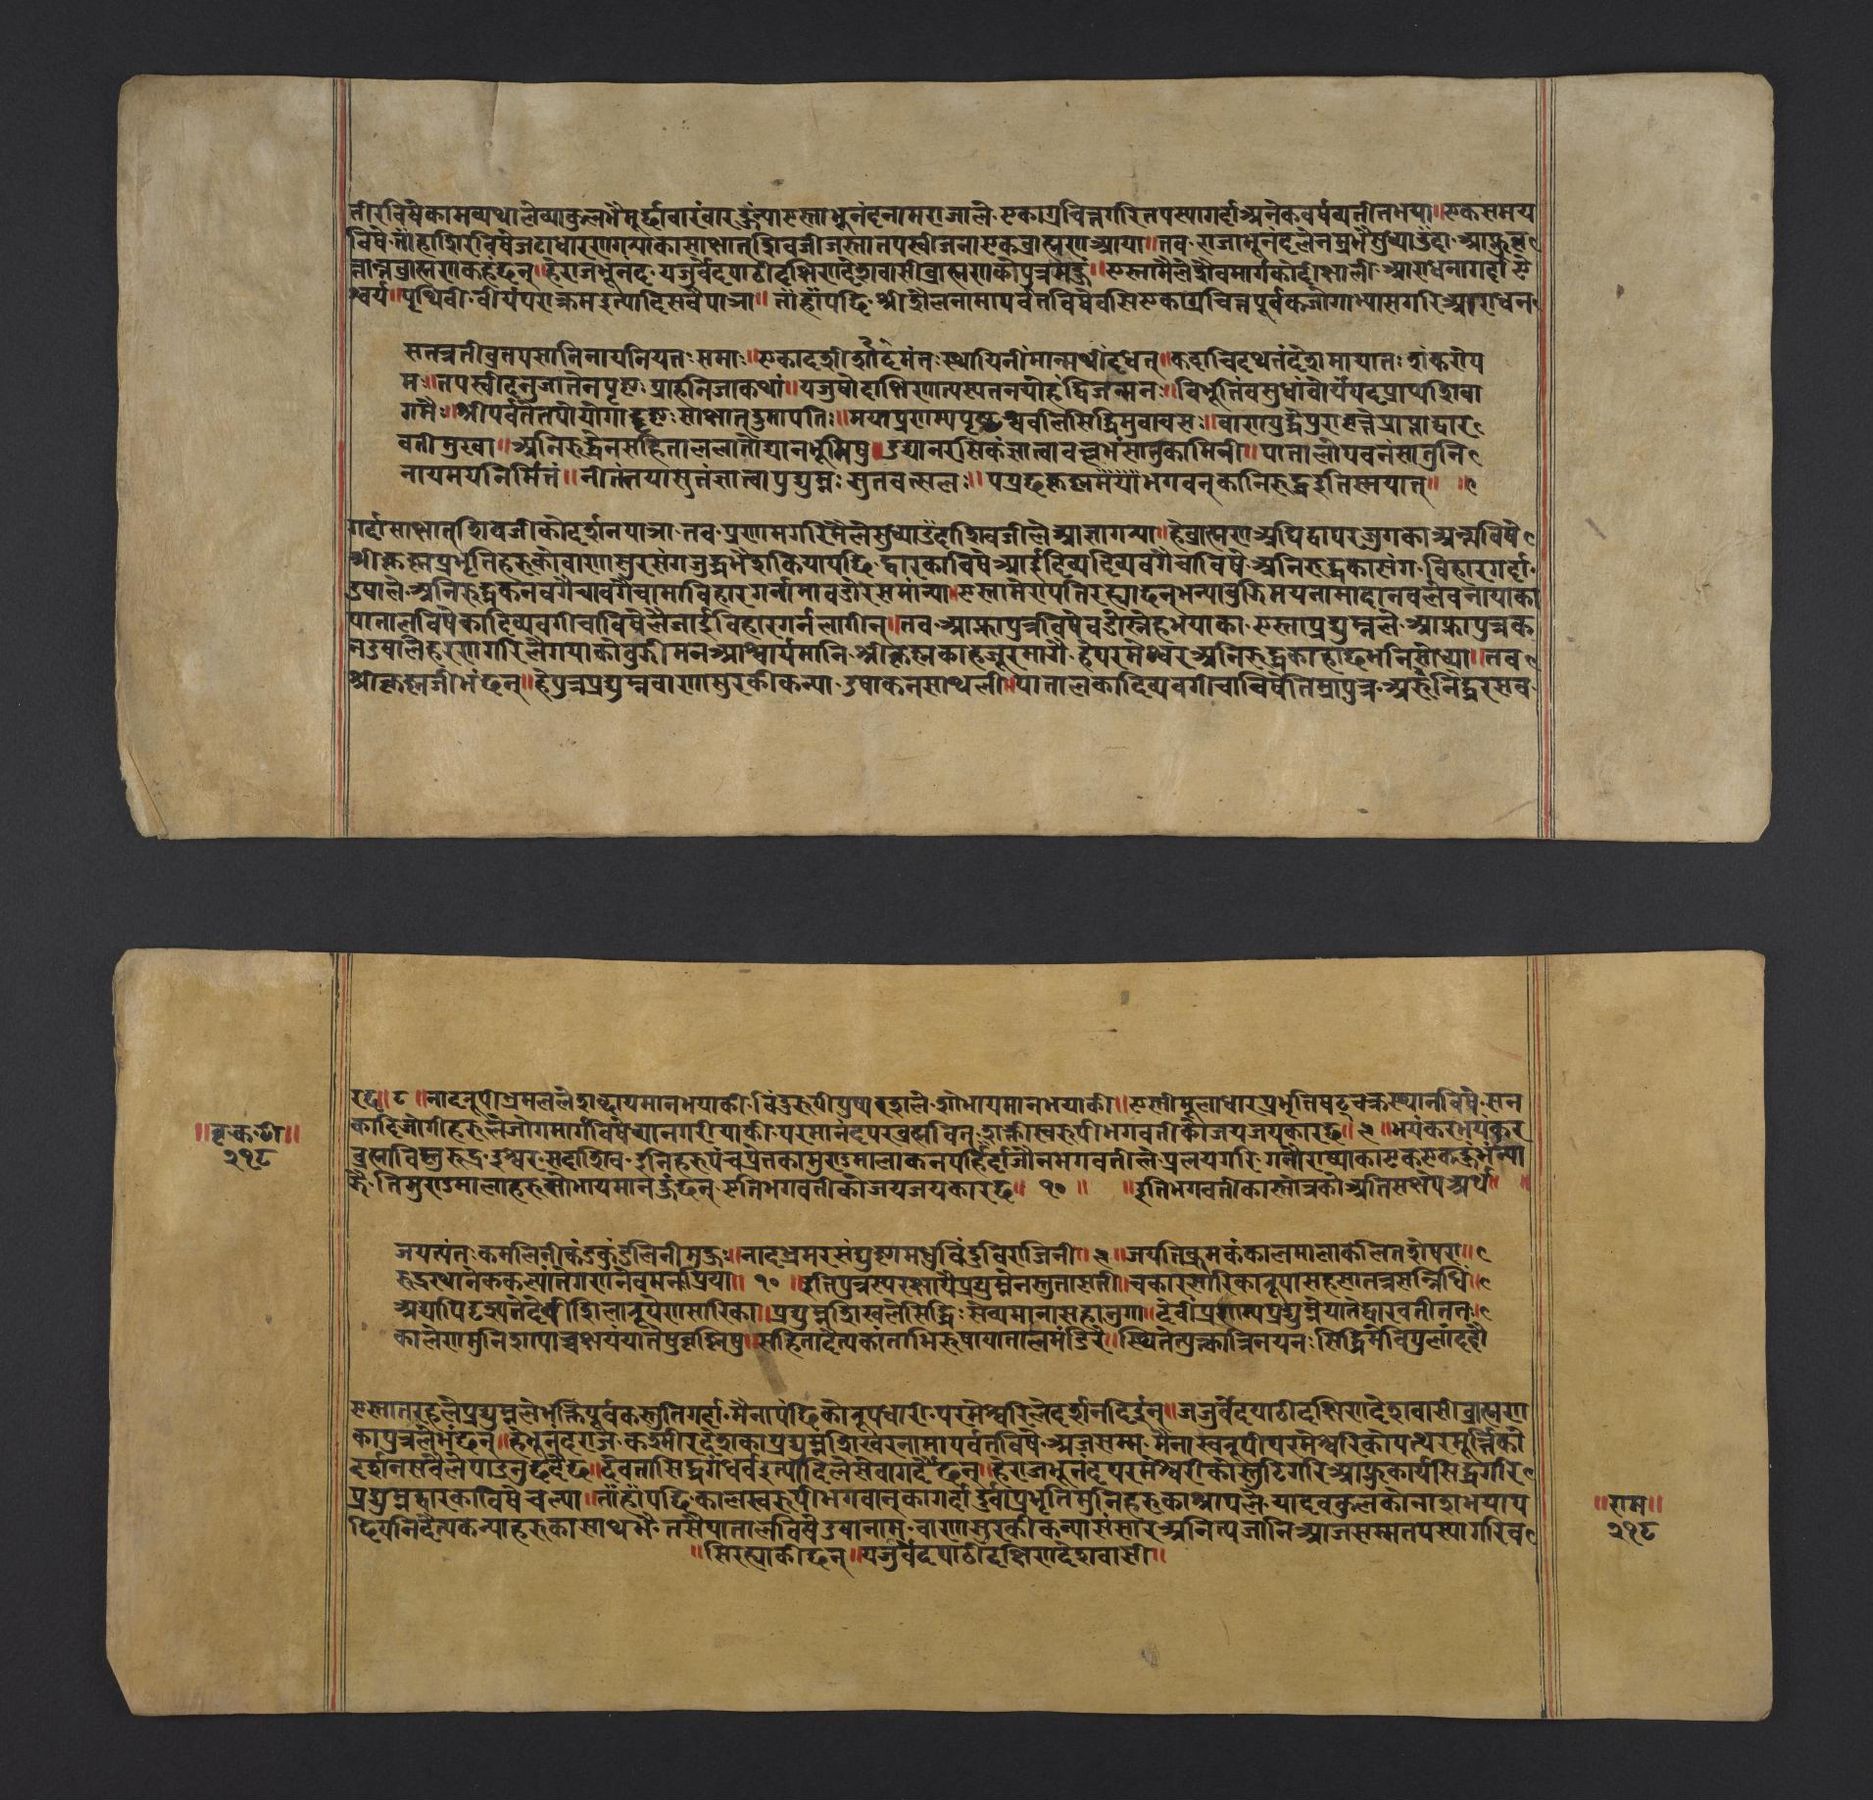 तीरविषे कामव्यथाले व्याकुल भै मूर्छा वारंवार हुंन्या एस्ता भूनंदनाम राजाले एकाग्रचित्त गरि तपस्या गर्दा अनेक वर्ष व्यतीत भया॥ एक समय
विषे तांहा शिरविषे जटा धारण गर्न्याका साक्षात् शिवजी जस्ता तपस्वी जना एक ब्राह्मण आया॥ तव राजा भूनंदले नम्र भै सुध्याउंदा आफ्नु व
त्तान्त ब्राह्मण कहंछन्॥ हे राज भूनंद यजुर्वेदपाठी दक्षिणदेशवासी ब्राह्मणको पुत्र म हुं॥ एस्ता मैले शैवमार्गको दीक्षा ली आराधना गर्दा ऐ
श्वर्य॥ पृथिवी वीर्य पराक्रम इत्यादि सवै पाञा॥ तांहां पछि श्रीशैल नामा पर्वतविषे वसि एकाग्रचित्तपूर्वक जोगाभ्यास गरि आराधन
सतत्र तीव्रतपसा निनाय नियतः समाः॥ एकादशी शार्वीदमंतः स्थायिनीं मान्मथीं दधत्॥ कदाचिदथ तं देशमायातः शंकरोप
मः॥ तपस्वी दनुजातेन पृष्टः प्राह निजां कथां॥ यजुषो दाक्षिणात्यस्य तनयोहं द्विजन्मनः॥ विभूतिं वसुधां वीर्यं यदप्राप्य शिवा
गमैः॥ श्रीपर्वते तपोयोगाद्दृष्टः साक्षात् उमापतिः॥ मया प्रणम्य पृष्टश्च वलिसिद्धिमुवाच सः॥ वाणयुद्धे पुरा वृत्ते प्राप्ता द्वार
वती मुखा॥ अनिरुद्धेन सहिता ललातोद्यानभूमिषु॥ उद्यानरसिकं ज्ञात्वा वल्लभं सानुकामिनी॥ पातालोपवनं सा तु नि
नाय मयनिर्मितं॥ नीतं तया सुतं ज्ञात्वा पुद्युम्नः सुतवत्सलः॥ पप्रछ कृष्णमैयां भगवन् क्वानिरुद्ध इति स्मयात्॥
गर्दा साक्षात् शिवजीको दर्शन पाञा तव प्रणाम गरि मैले सुध्याउंदा शिवजीले आज्ञा गन्या॥ हे ब्राह्मण अघि द्वापर जुगका अन्त्यविषे
श्रीकृष्णप्रभृतिहरुको वाणासुर संग जुद्ध भै शकियापछि द्वारकाविषे आई दिव्य दिव्य वगैचाविषे अनिरुद्धका संग विहार गर्दा
उषाले अनिरुद्धकन वगैचा वगैचामा विहार गर्नामा वडो रस मान्या॥ एस्ता मेरा पति रह्याछन् भन्या वुझि मय नामा दानवले वनायाका
पातालविषेका दिव्य वगीचाविषे लैजाई विहार गर्न लागीन्॥ तव आफ्ना पुत्रविषे वडो स्नेह भयाका एस्ता प्रद्युम्नले आफ्ना पुत्रक
न उषाले हरण गरि लैगयाको वुझी मन आश्चार्य मानि श्रीकृष्णका हजूरमा गै हे परमेश्वर अनिरुद्ध काहा छ भनि सोध्या॥ तव
श्रीकृष्णजी भंछन्॥ हे पुत्र प्रद्युम्न वाणासुरकी कन्या उषाकन साथ ली॥ पातालका दिव्य वगीचाविषे तिम्रा पुत्र अरुनिद्ध रसव
रछ॥ ८॥ नादरुपी भ्रमलले शब्दायमान भयाकी विंदुरुपी पुष्परशले शोभायमान भयाकी॥ एस्ती मूलाधारप्रभृति षट्चक्रस्थानविषे सन
कादि जोगीहरुले जोगमार्गविषे ध्यान गरीयाकी परमानंद परब्रह्म चित् शक्ति स्वरुपी भगवतीको जयजयकार छ॥ ९॥ भयंकर भयंकर
ब्रह्मा विष्णु रुद्र ईश्वर सदाशिव इनिहरु पंचप्रेतका मुण्डमालाकन पर्हिर्दा जौन भगवतीले प्रलय गरि गलौ राष्याका एक एक हुं भंन्या
झैं ति मुण्डमालाहरु सोभायमान हुंछन् एति भगवतीको जयजयकार छ॥ १०॥ ॥ इति भगवतीका स्तोत्रको अतिसंक्षेप अर्थ॥
जयत्यंतःकमलिनीकंडकुंडलिनीमुडुः॥ नादभ्रमरसंघुष्टागमधुविंदुविराजिनी॥ ९॥ जयति ब्रह्मकंकालमालाकलितशेषरा॥
रुद्रस्थानककल्पांतेगणनेवमनःप्रिया॥ १०॥ इति पुत्रस्य रक्षायै प्रद्युम्नेन स्तुता सती॥ चकार सारिकारूपा सहसा तत्र सन्निधिं॥
अद्यापि दृश्यते देवी शिलारूपेण सारिका॥ प्रद्युम्नशिखले सिद्धिः सेव्यमाना सहानुगा॥ देवीं प्रणम्य प्रद्युम्ने याते द्वारवतीं ततः
कालेण मुनिशापाच्च क्षयं याते पुवृष्णिषु॥ सहिता दैत्यकांताभिरुषा पातालमंडिरे॥ स्थितेत्युक्त्वा त्रिनयनः सिद्धिं मे विपुलां ददौ
एस्ता तरहले प्रद्युम्नले भक्तिपूर्वक स्तुति गर्दा मैना पंछिको रूप धारी परमेश्वरिले दर्शन दिईन्॥ जजुर्वेदपाठी दक्षिणदेशवासी ब्राह्मण
का पुत्रले भंछन्॥ हे भुनंद राज कश्मीरदेशका प्रद्युम्नशिखर नामा पर्वतविषे अजसम्म मैनास्वरुपी परमेश्वरिको पत्थरमुर्त्तिको
दर्शन सवैले पाउनु हुंदैछ॥ देवता सिद्ध गंधर्व इत्यादिले सेवा गर्दै छन्॥ हे राज भूनंद परमेश्वरीको स्तुटि गरि आफ्नु कार्य सिद्ध गरि
प्रद्युम्न द्वारकाविषे चल्या॥ तांहां पछि कालस्वरुपी भगवान्का गर्दा दुर्वाप्रभृति मुनिहरुका श्रापले यादवकुलको नाश भयाप
छि पनि दैत्यकन्याहरुका साथ भै तसै पातालविषे उषानाम् वाणासुरकी कन्या संसार अनित्य जानि आजसम्म तपस्या गरि व
॥ सिरह्याकी छन्॥ यजुर्वेदपाठी दक्षिणदेशवासी॥
॥ वृ क थ॥
२१८
॥ राम॥
२१८